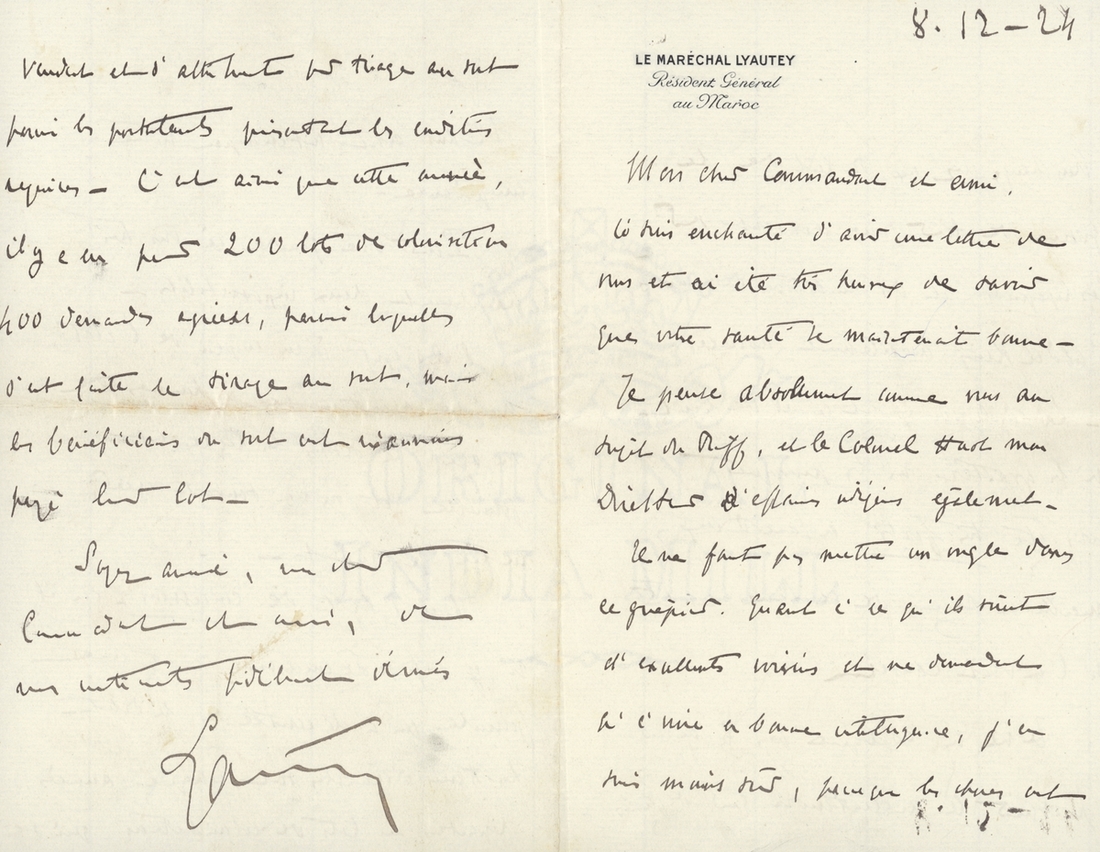 8.12-24
LE MARÉCHAL LYAUTEY
Résident Général
au Maroc
Mon cher Commandant et ami,
Je suis enchanté d'avoir une lettre de
vous et ai été très heureux de savoir
que votre santé se maintenait bonne —
Je pense absolument comme vous au
sujet du Riff, et le Colonel Huot mon
Directeur d'affaires indigènes également —
Il ne faut pas mettre un ongle dans
ce guêpier. Quant à ce qu'ils soient
d'excellents voisins et ne demandent
qu'à vivre en bonne intelligence, j'en
suis moins sûr, parce que les choses ont
vendant et d'attribuer par tirage au sort
parmi les postulants présentant les conditions
requises — C'est ainsi que cette année,
il y a eu pour 200 lots de colonisation
400 demandes agréées, parmi lesquelles
s'est faite le tirage au sort, mais
les bénéficiaires du sort ont néanmoins
payé leur lot —
Soyez assuré, mon cher
Commandant et ami, de
mes sentiments fidèlement dévoués
Lyautey